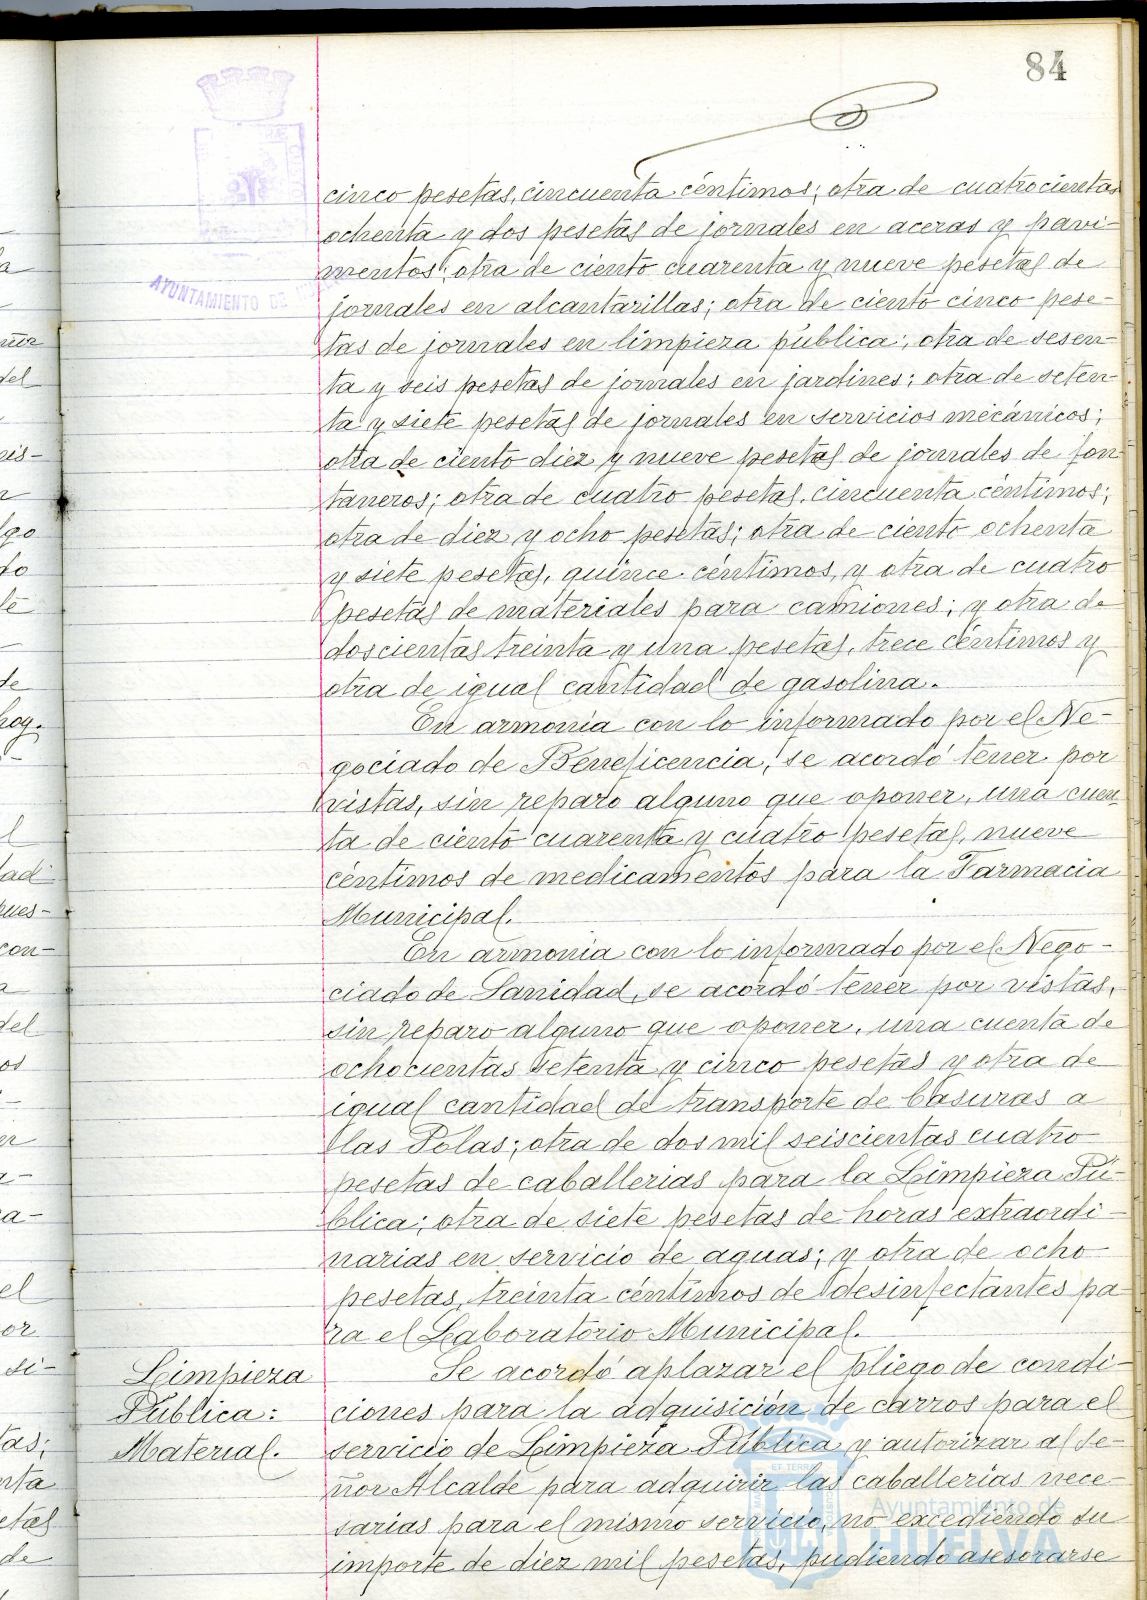 84
AYUNTAMIENTO DE
cinco pesetas, cincuenta céntimos; otra de cuatrocientas
ochenta y dos pesetas de jornales en aceras y pavi-
mentos; otra de ciento cuarenta y nueve pesetas de
jornales en alcantarillas; otra de ciento cinco pese-
tas de jornales en limpieza pública; otra de sesen-
ta y seis pesetas de jornales en jardines; otra de seten-
ta y siete pesetas de jornales en servicios mecánicos;
otra de ciento diez y nueve pesetas de jornales de fon-
taneros; otra de cuatro pesetas, cincuenta céntimos;
otra de diez y ocho pesetas; otra de ciento ochenta
y siete pesetas, quince céntimos, y otra de cuatro
pesetas de materiales para camiones; y otra de
doscientas treinta y una pesetas, trece céntimos y
otra de igual cantidad de gasolina.
En armonía con lo informado por el Ne-
gociado de Beneficencia, se acordó tener por
vistas, sin reparo alguno que oponer, una cuen-
ta de ciento cuarenta y cuatro pesetas, nueve
céntimos de medicamentos para la Farmacia
Municipal.
En armonía con lo informado por el Nego-
ciado de Sanidad, se acordó tener por vistas,
sin reparo alguno que oponer, una cuenta de
ochocientas setenta y cinco pesetas y otra de
igual cantidad de transporte de basuras a
las Polas; otra de dos mil seiscientas cuatro
pesetas de caballerias para la Limpieza Pú-
blica; otra de siete pesetas de horas extraordi-
narias en servicio de aguas; y otra de ocho
pesetas, treinta céntimos de desinfectantes pa-
ra el Laboratorio Municipal.
Limpieza
Pública:
Material.
Se acordó aplazar el pliego de condi-
ciones para la adquisición de carros para el
servicio de Limpieza Pública y autorizar al Se-
ñor Alcalde para adquirir las caballerias nece-
sarias para el mismo servicio, no excediendo su
importe de diez mil pesetas, pudiendo asesorarse
Ayuntamiento de
HUELVA